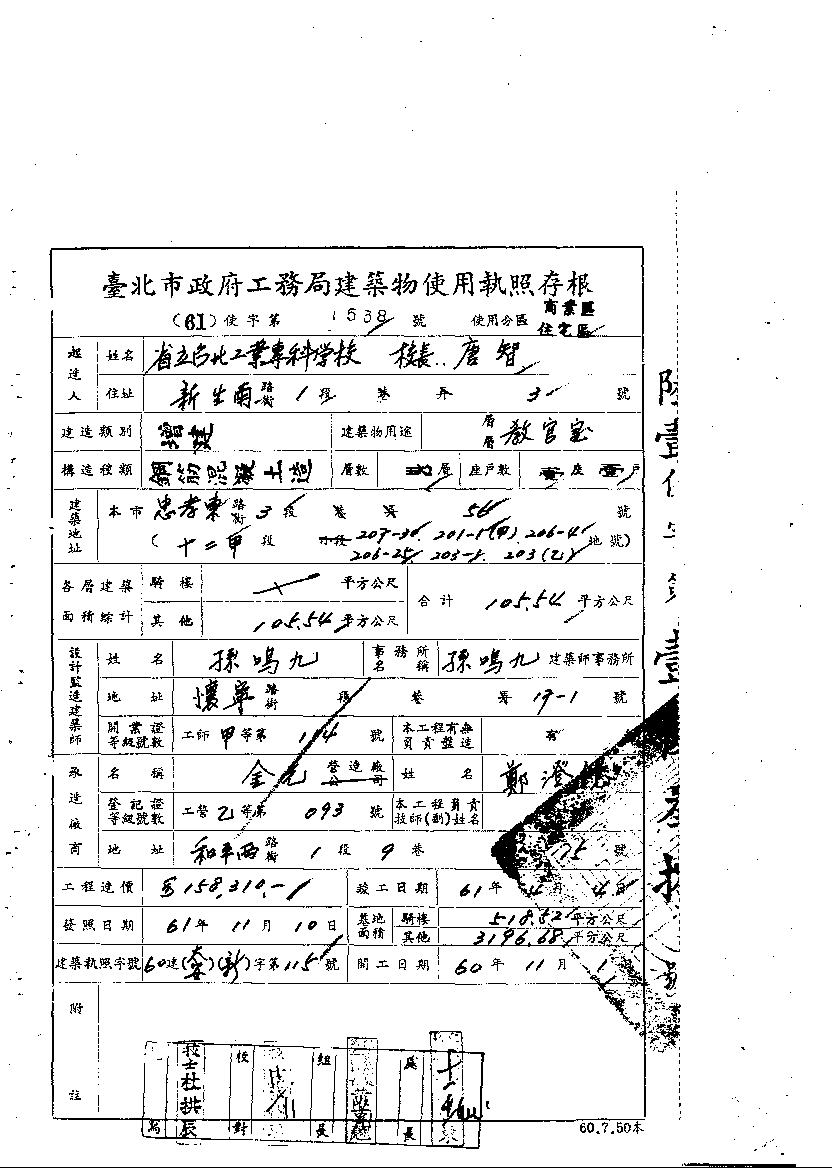 臺北市政府工務局建築物使用執照存根
(61)使字第 1538 號 使用分區 商業區 住宅區
起造人 姓名 省立台北工業專科学校 校長 唐智
住址 新生南 路街 1 段 巷 弄 3 號
建造類別 增建 建築物用途 層層 教官室
構造種類 鋼筋混凝土造 層數 層 座戶數 壹座 壹戶
建築地址 本市 忠孝東 路街 3 段 巷 弄 56 號
(十二甲 段 小段 207-30, 201-1(甲), 206-41
206-25, 203-1, 203(乙) 地號)
各層建築面積綜計 騎樓 平方公尺 合計 105.54 平方公尺
其他 105.54 平方公尺
設計監造建築師 姓名 孫鳴九 事務所名稱 孫鳴九 建築師事務所
地址 懷寧 路街 段 巷 弄 19-1 號
開業證等級號數 工師 甲 等第 104 號 本工程有無負責監造 有
承造廠商 名稱 營造廠公司 姓名 鄭澄
登記證等級號數 工營 乙 等第 093 號 本工程負責技師(副)姓名
地址 和平西 路街 1 段 9 巷 175 號
工程造價 158,310.- 竣工日期 61 年 4 月 4 日
發照日期 61 年 11 月 10 日 基地面積 騎樓 518.52 平方公尺
其他 3196.68 平方公尺
建築執照字號 60 建 (新) 字第 115 號 開工日期 60 年 11 月 1
附註
技士杜拱辰 校對 組長 長
60.7.50本